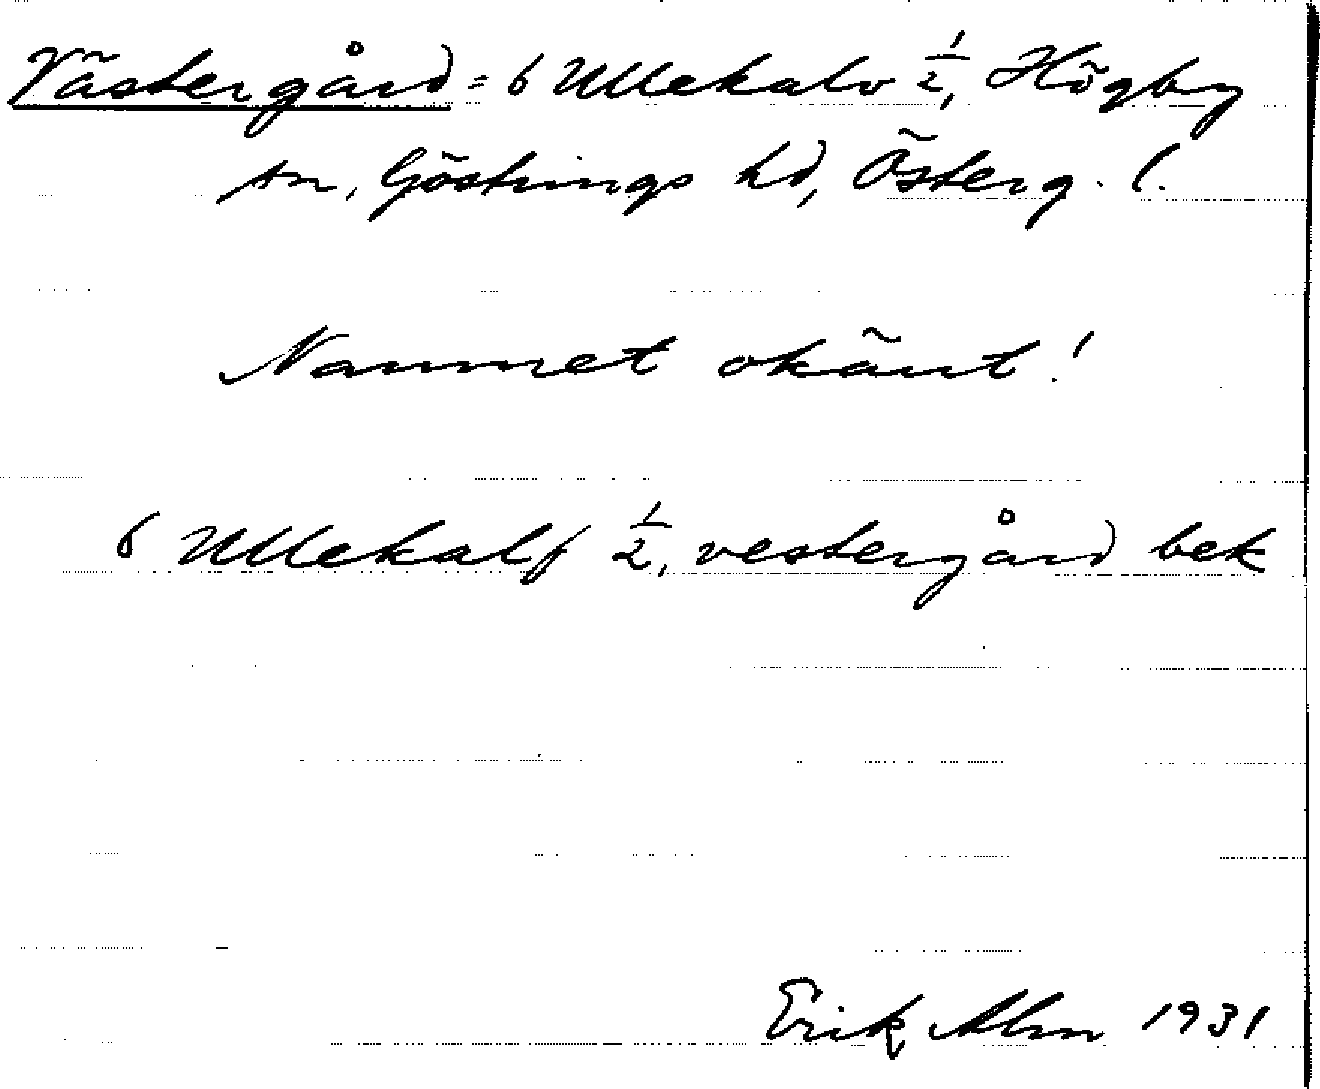 Västergård = 6 Ullekalv 1/2, Högby
sn, Göstrings hd, Österg. l.
Namnet okänt!
6 Ullekalf 1/2, vestergård bek
Erik Alm 1931